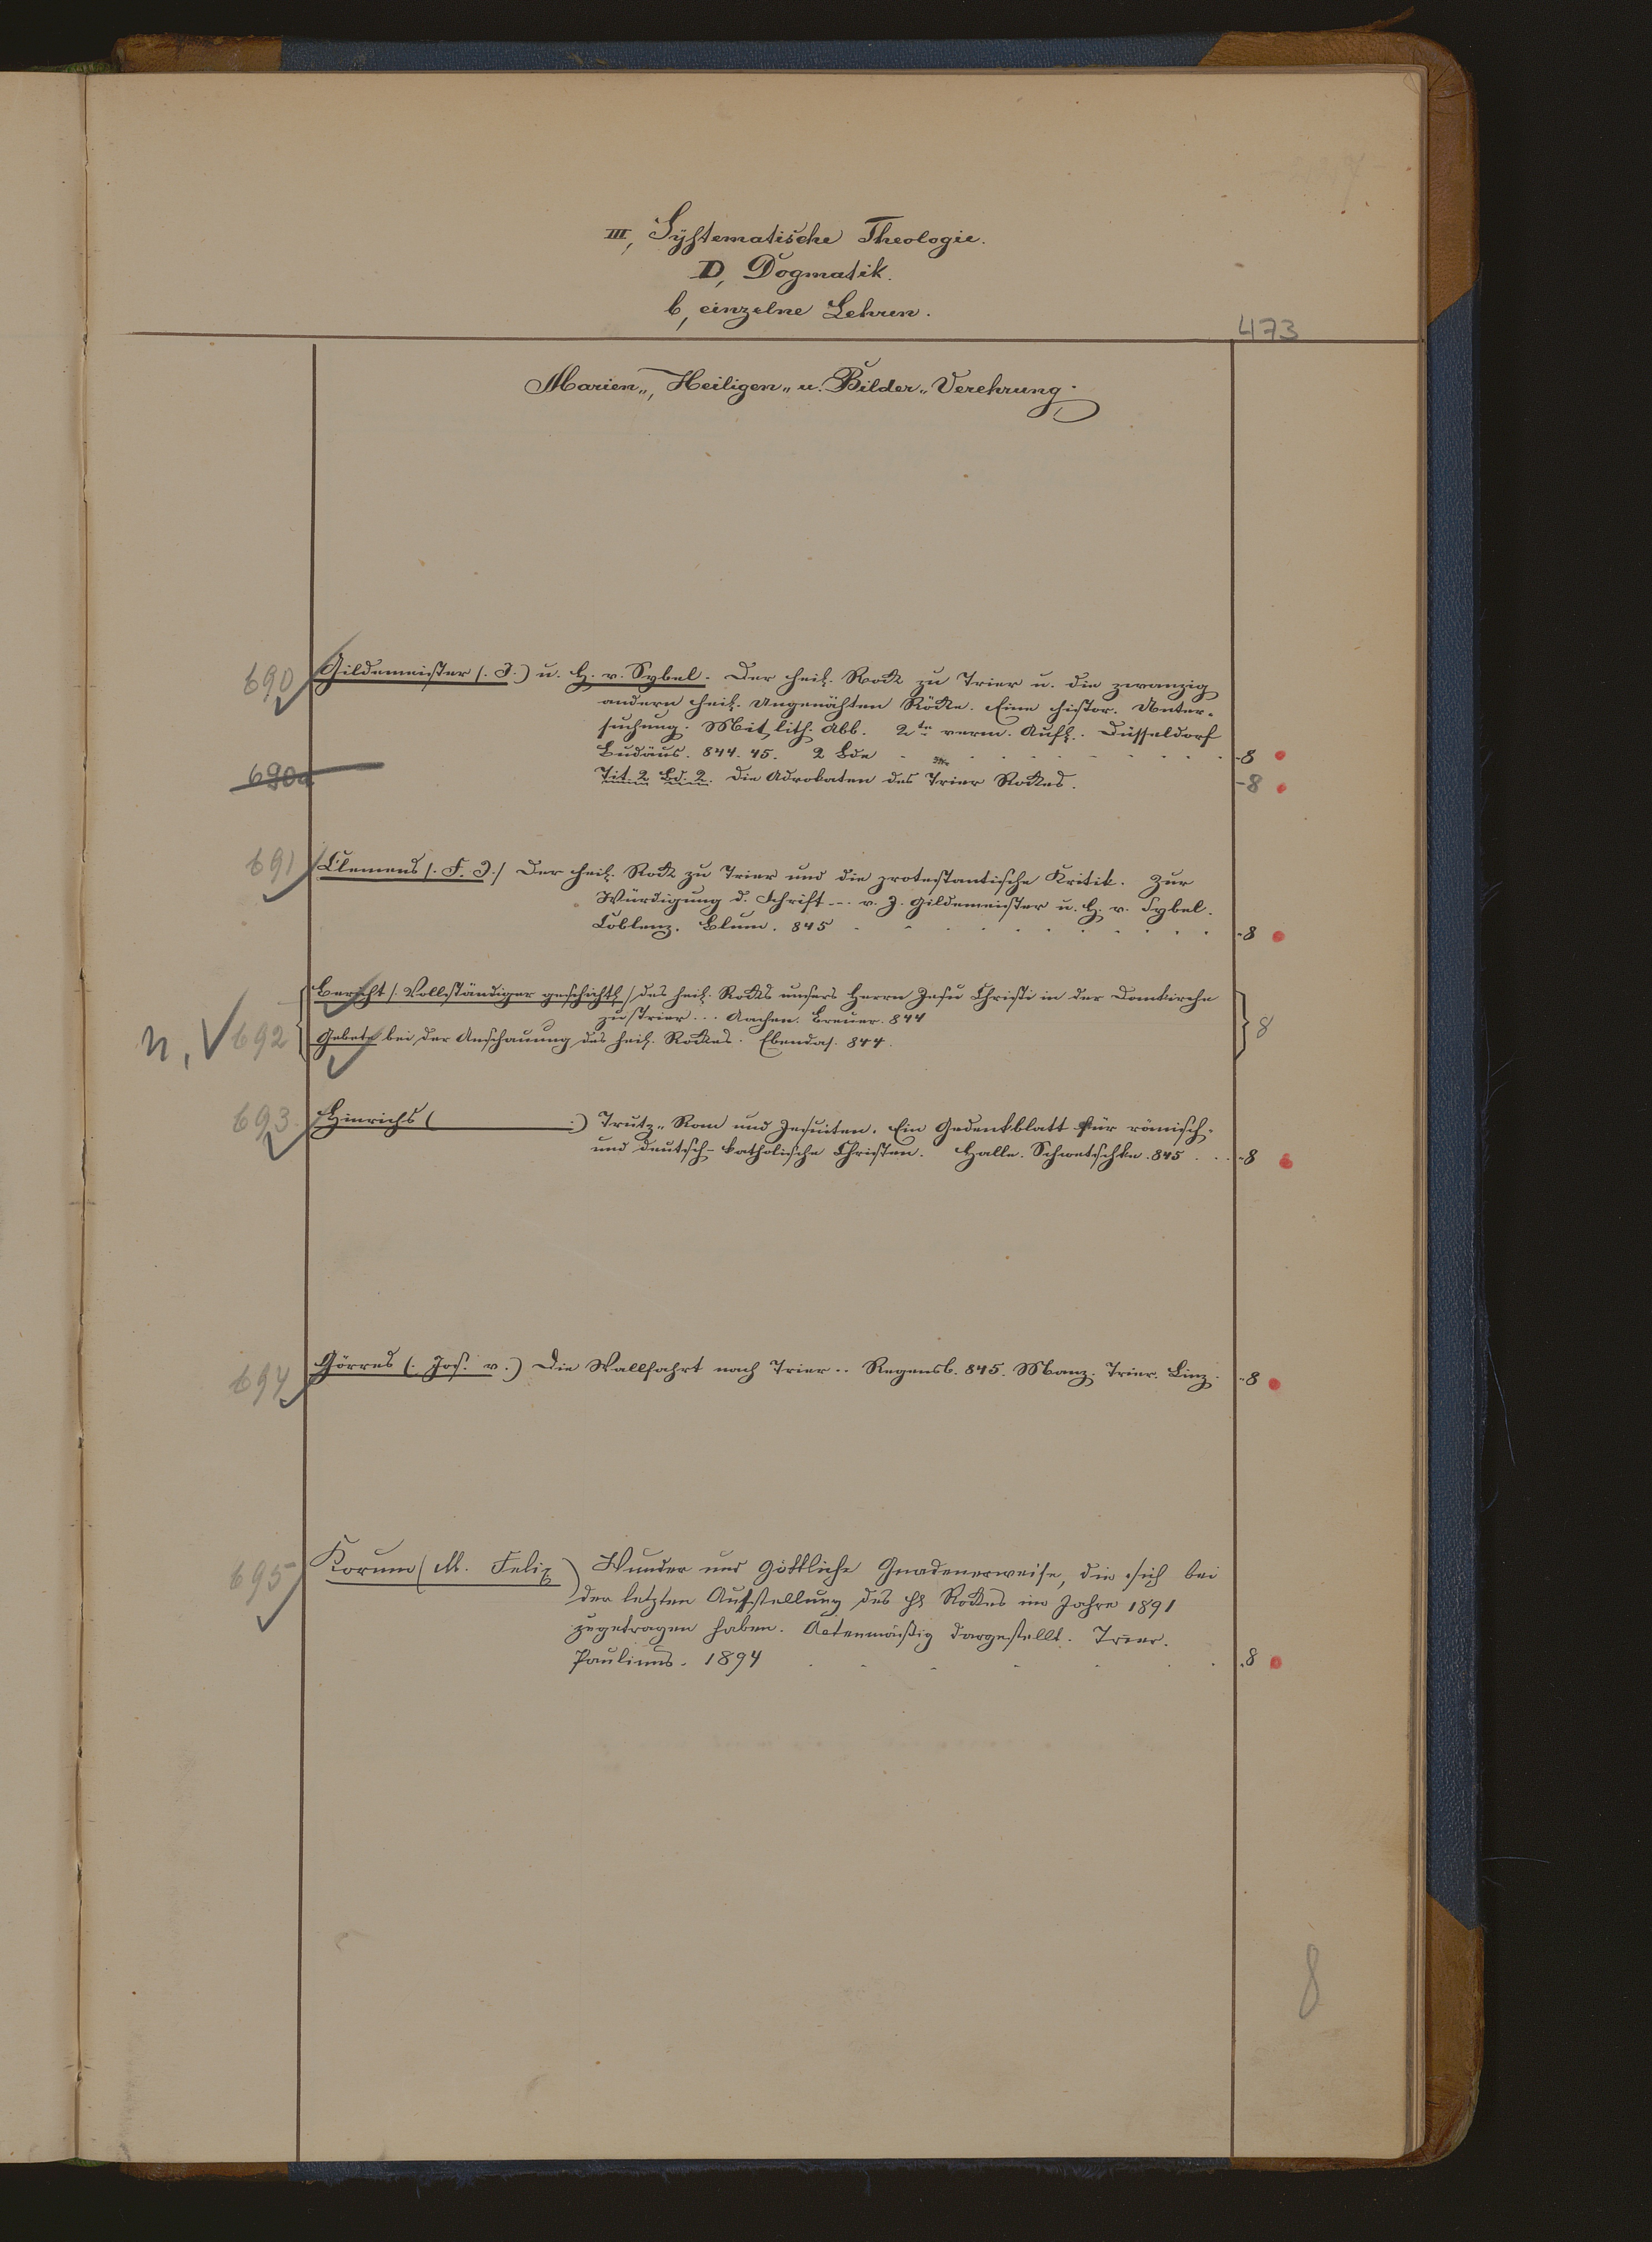 III, Systematische Theologie.
D, Dogmatik.
b, einzelne Lehren.
473
Marien-, Heiligen- u. Bilder-Verehrung.
690 Gildemeister (. J.) u. H. v. Sybel. Der heil. Rock zu Trier u. die zwanzig
andern heil. Ungenähten Röcke. Eine histor. Unter-
suchung. Mit lith. Abb. 2te verm. Aufl.. Düsseldorf
Budäus. 844. 45. 2 Bde -8
690a Tit. 2 Bd. 2. Die Advokaten des Trier Rockes. -8
691 Clemens (. F. J.) Der heil. Rock zu Trier und die protestantische Kritik. Zur
Würdigung d. Schrift --- v. J. Gildemeister u. H. v. Sybel.
Coblenz. Blum. 845 -8
Bericht (. Vollständiger geschichtl.) des heil. Rocks unsers Herrn Jesu Christi in der Domkirche
zu Trier... Aachen. Breuer. 844
n, 692 Gebete bei der Anschauung des heil. Rockes. Ebendas. 844. 8
693. Hinrichs ( .) Trutz-Rom und Jesuiten. Ein Gedenkblatt für römisch-
und deutsch-katholische Christen. Halle. Schwetschke. 845 -8
694 Görres (. Jos. v.) Die Wallfahrt nach Trier.. Regensb. 845. Manz. Trier. Linz. -8
695 Korum (M. Felix) Wunder und Göttliche Gnadenerweise, die sich bei
der letzten Ausstellung des hl Rockes im Jahre 1891
zugetragen haben. Actenmäßig dargestellt. Trier.
Paulinus. 1894 8
8